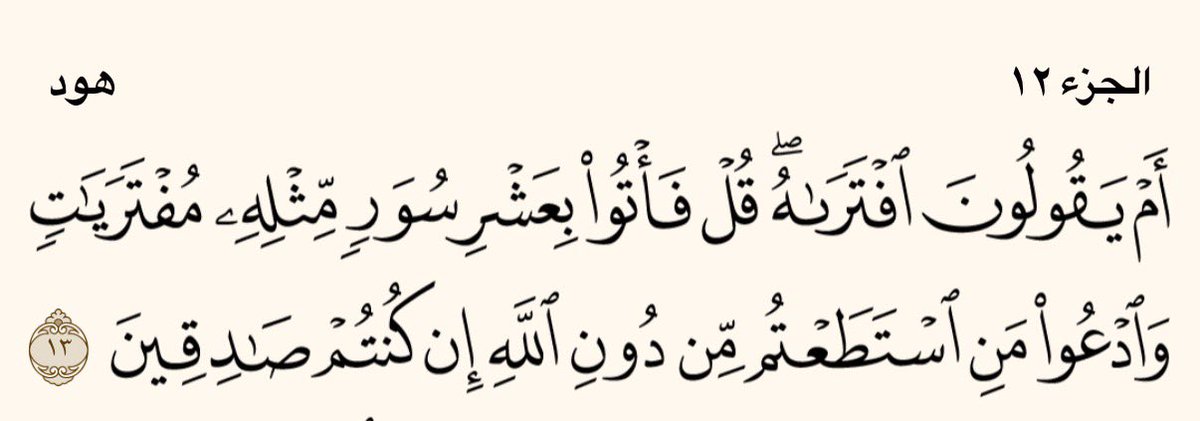 الجزء ١٢
هود
أَمۡ يَقُولُونَ ٱفۡتَرَىٰهُۖ قُلۡ فَأۡتُواْ بِعَشۡرِ سُوَرٖ مِّثۡلِهِۦ مُفۡتَرَيَٰتٖ
وَٱدۡعُواْ مَنِ ٱسۡتَطَعۡتُم مِّن دُونِ ٱللَّهِ إِن كُنتُمۡ صَٰدِقِينَ ١٣